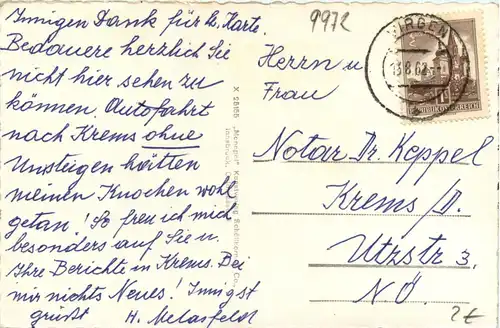 Innigen Dank für lb. Karte.
Bedauere herzlich Sie
nicht hier sehen zu
können. Autofahrt
nach Krems ohne
Umsteigen hätten
meinen Knochen wohl
getan! So freu ich mich
besonders auf Sie u.
Ihre Berichte in Krems. Bei
mir nichts Neues! Innigst
grüßt H.
9972
VIRGEN
REPUBLIK ÖSTERREICH
Herrn u.
Frau
Notar Dr. Keppel
Krems /D.
Utzstr 3,
N.Ö.
2€